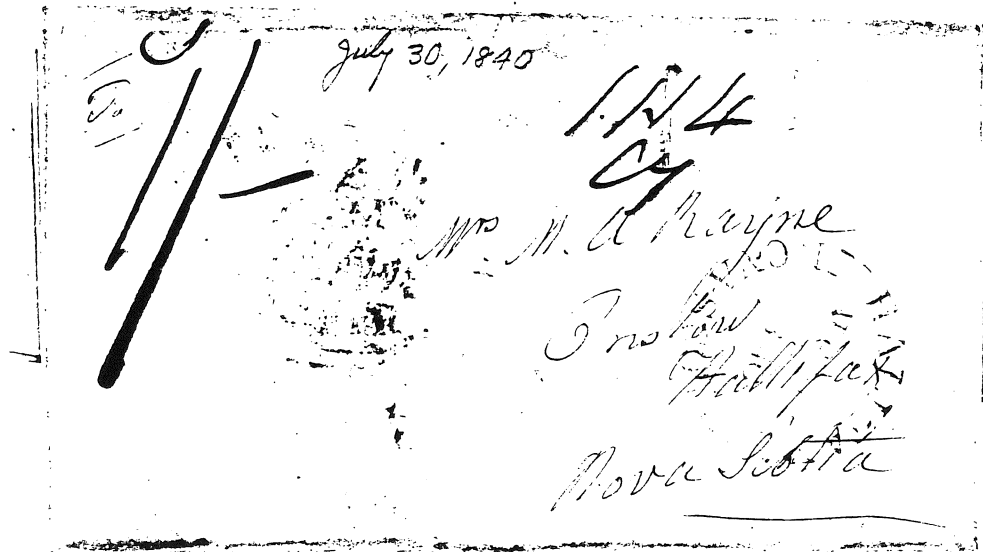 July 30, 1840
To
1/-
1.N 4
Cy
Mrs M. A Rayne
Onslow
Hallifax
Nova Scotia